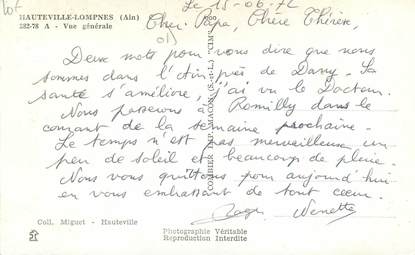 lot
Le 15-06-72
HAUTEVILLE-LOMPNES (Ain)
282-78 A - Vue générale
Cher Papa, Chère Thérèse,
01
Deux mots pour vous dire que nous
sommes dans l'Ain près de Dany. Sa
santé s'améliore, j'ai vu le Docteur.
Nous passerons à Romilly dans le
courant de la semaine prochaine.
Le temps n'est pas merveilleux un
peu de soleil et beaucoup de pluie.
Nous vous quittons pour aujourd'hui
en vous embrassant de tout cœur.
Roger Nenette
Coll. Miguet - Hauteville
Photographie Véritable
Reproduction Interdite
COMBIER IMP. MACON (S.-et-L.) "CIM"